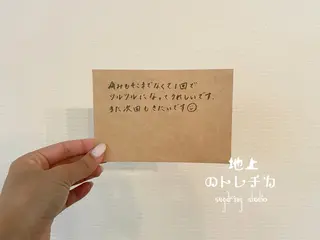 痛みもそこまでなくて1回で
ツルツルになってうれしいです。
また次回もきたいです☺
地上
のトレチカ
sugaring studio